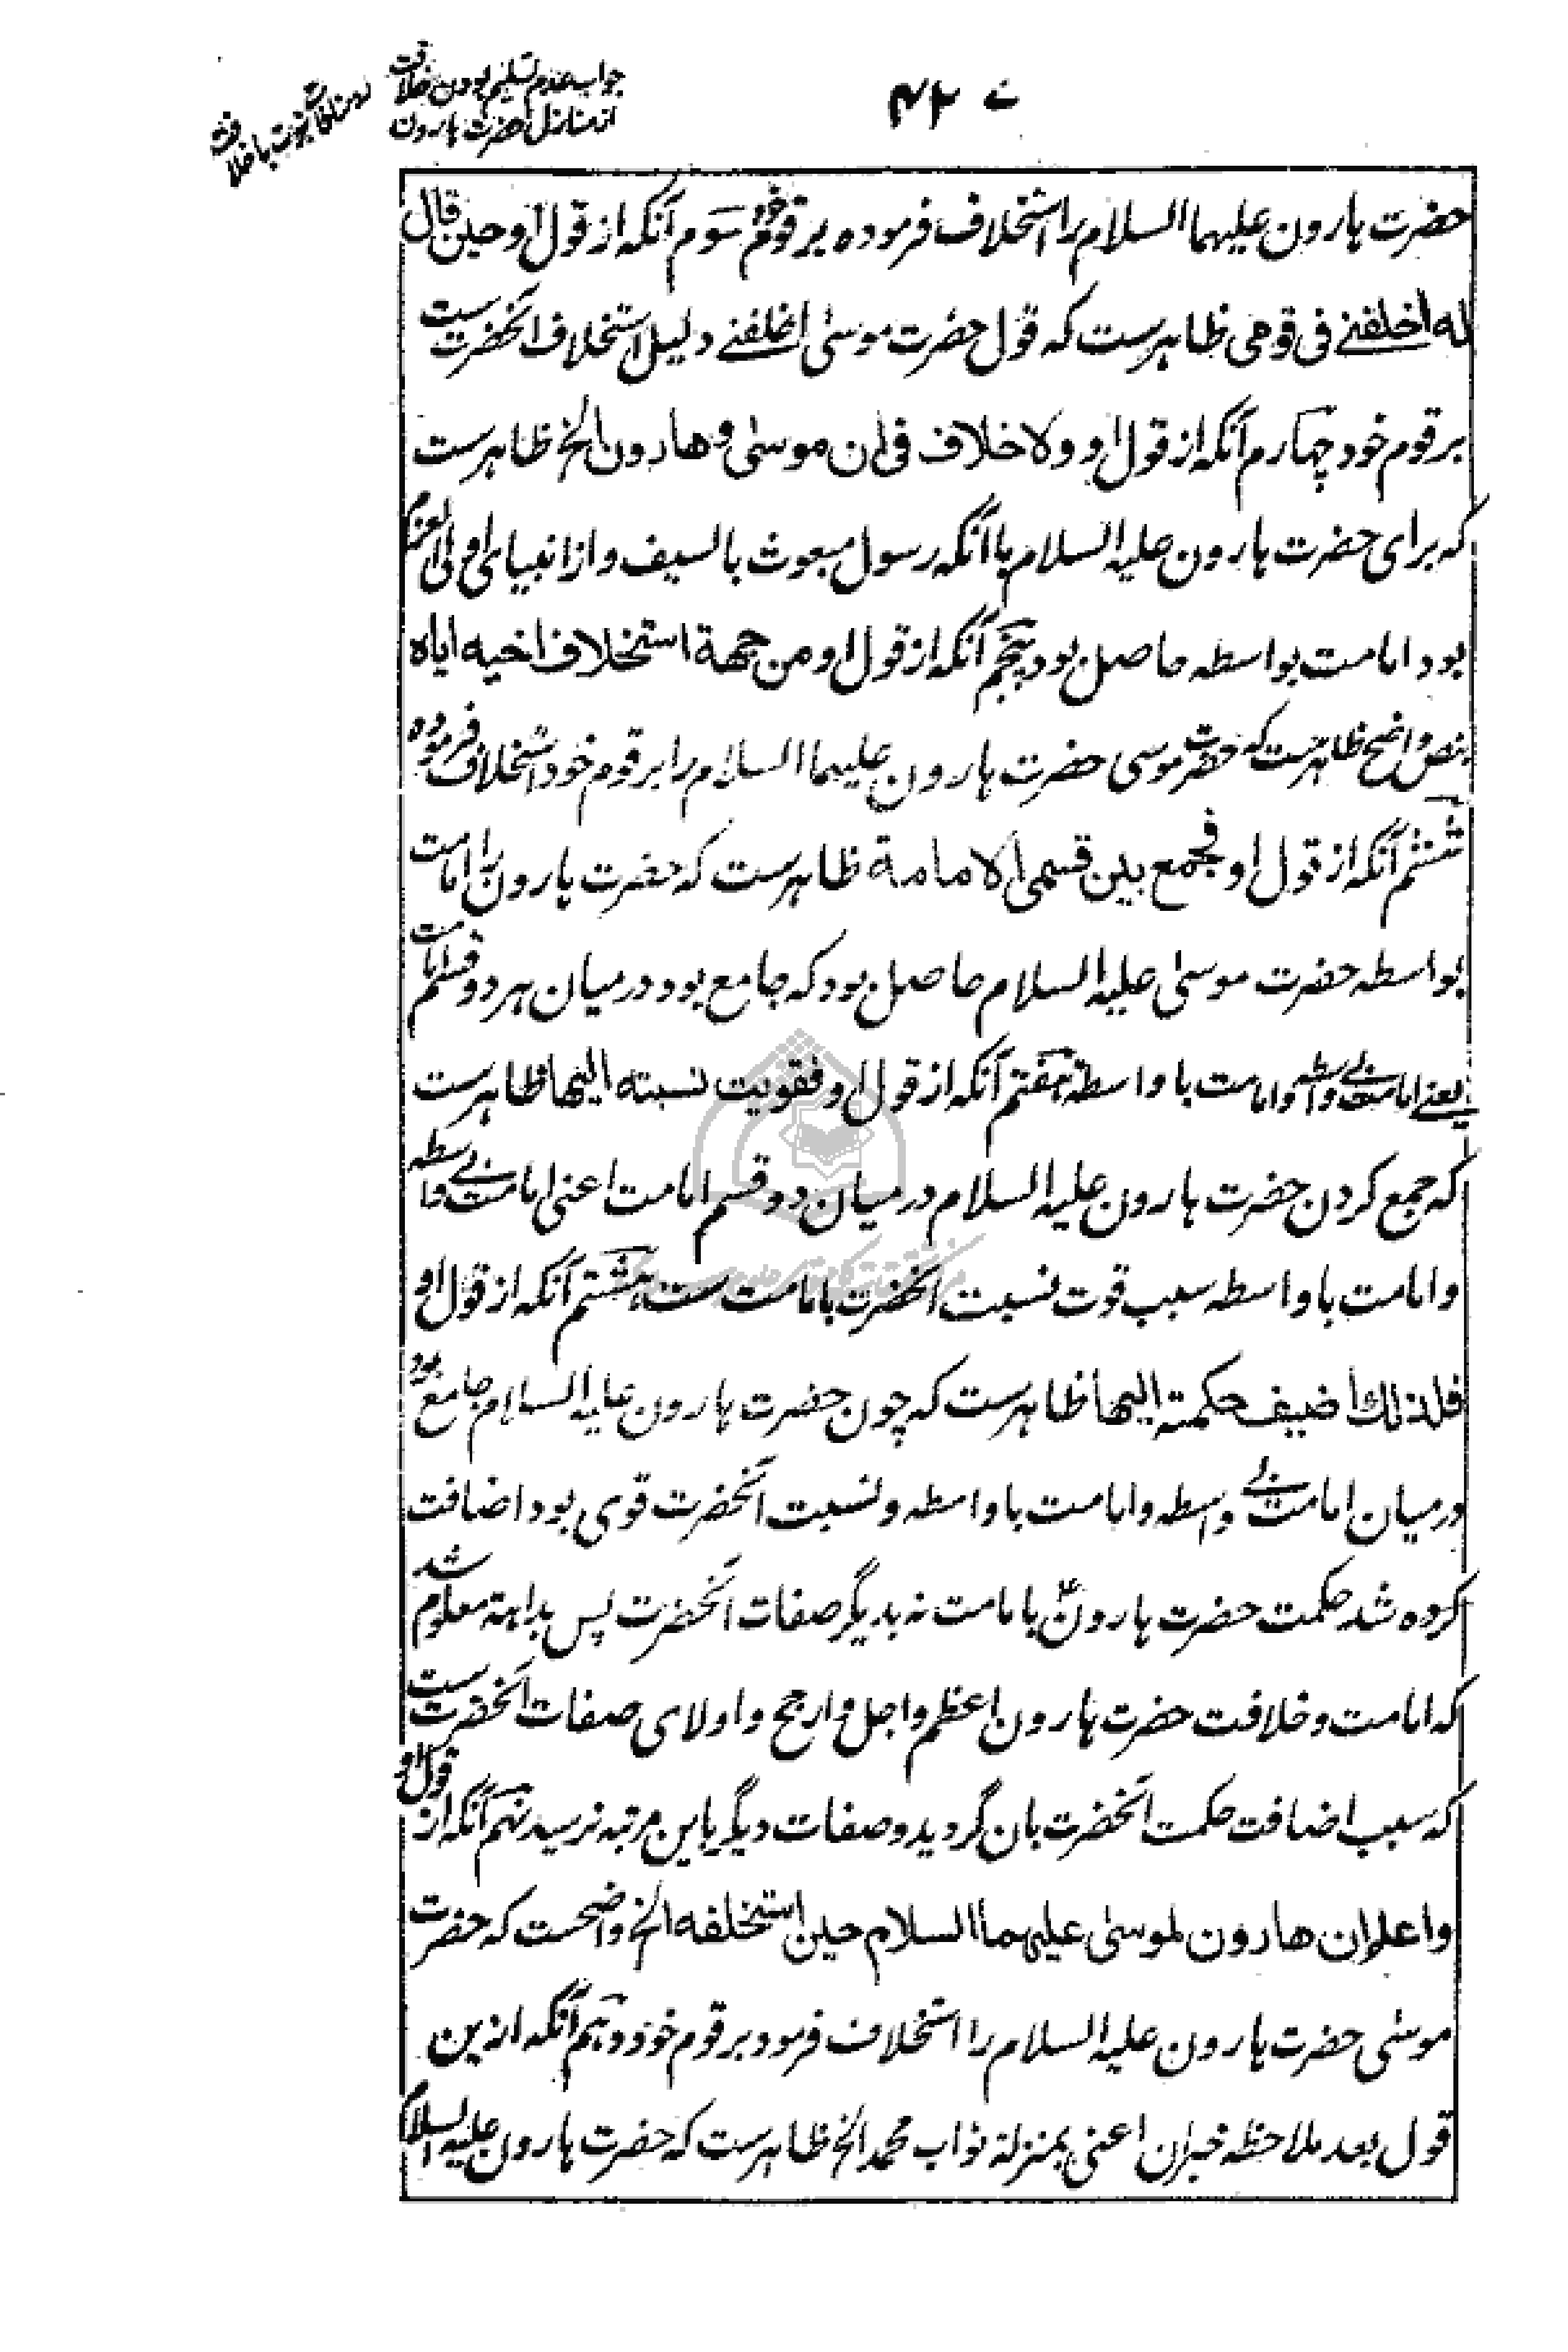 ۴۲۷
جواب عدم تسلیم بودن خلافت
از منازل حضرت هارون
ثبوت با خلافت
حضرت هارون علیهما السلام را استخلاف فرموده بر قوم خود سوم آنکه از قول او حین قال
له اخلفنے فی قومی ظاهرست که قول حضرت موسیٰ اخلفنے دلیل استخلاف آنحضرت ست
بر قوم خود چهارم آنکه از قول او ولا خلاف فی ان موسیٰ وهارون الخ ظاهرست
که برای حضرت هارون علیه السلام با آنکه رسول مبعوث بالسیف و از انبیای اولی العزم
بود امامت بواسطه حاصل بود پنجم آنکه از قول او من جهة استخلاف اخیه ایاه
بنص واضح ظاهرست که حضرت موسی حضرت هارون علیهما السلام را بر قوم خود استخلاف فرموده
ششم آنکه از قول او فجمع بین قسمی الامامة ظاهرست که حضرت هارون را امامت
بواسطه حضرت موسیٰ علیه السلام حاصل بود که جامع بود درمیان هر دو قسم امامت
یعنے امامت بے واسطه و امامت با واسطه هفتم آنکه از قول او فقویت نسبته الیها ظاهرست
که جمع کردن حضرت هارون علیه السلام درمیان دو قسم امامت اعنی امامت بے واسطه
و امامت با واسطه سبب قوت نسبت آنحضرت بامامت ست هشتم آنکه از قول او
فلذلك اضیف حکمته الیها ظاهرست که چون حضرت هارون علیه السلام جامع بود
درمیان امامت بے واسطه و امامت با واسطه و نسبت آنحضرت قوی بود اضافت
کرده شد حکمت حضرت هارونؑ بامامت نه بدیگر صفات آنحضرت پس بداهة معلوم شد
که امامت و خلافت حضرت هارون اعظم و اجل و ارجح و اولای صفات آنحضرت ست
که سبب اضافت حکمت آنحضرت بان گردید و صفات دیگر باین مرتبه نرسید نهم آنکه از قول او
واعلم ان هارون لموسیٰ علیهما السلام حین استخلفه الخ واضحست که حضرت
موسٰی حضرت هارون علیه السلام را استخلاف فرمود بر قوم خود دهم آنکه ازین
قول بعد ملاحظه خبر ان اعنی بمنزلة نواب محمد الخ ظاهرست که حضرت هارون علیه السلام